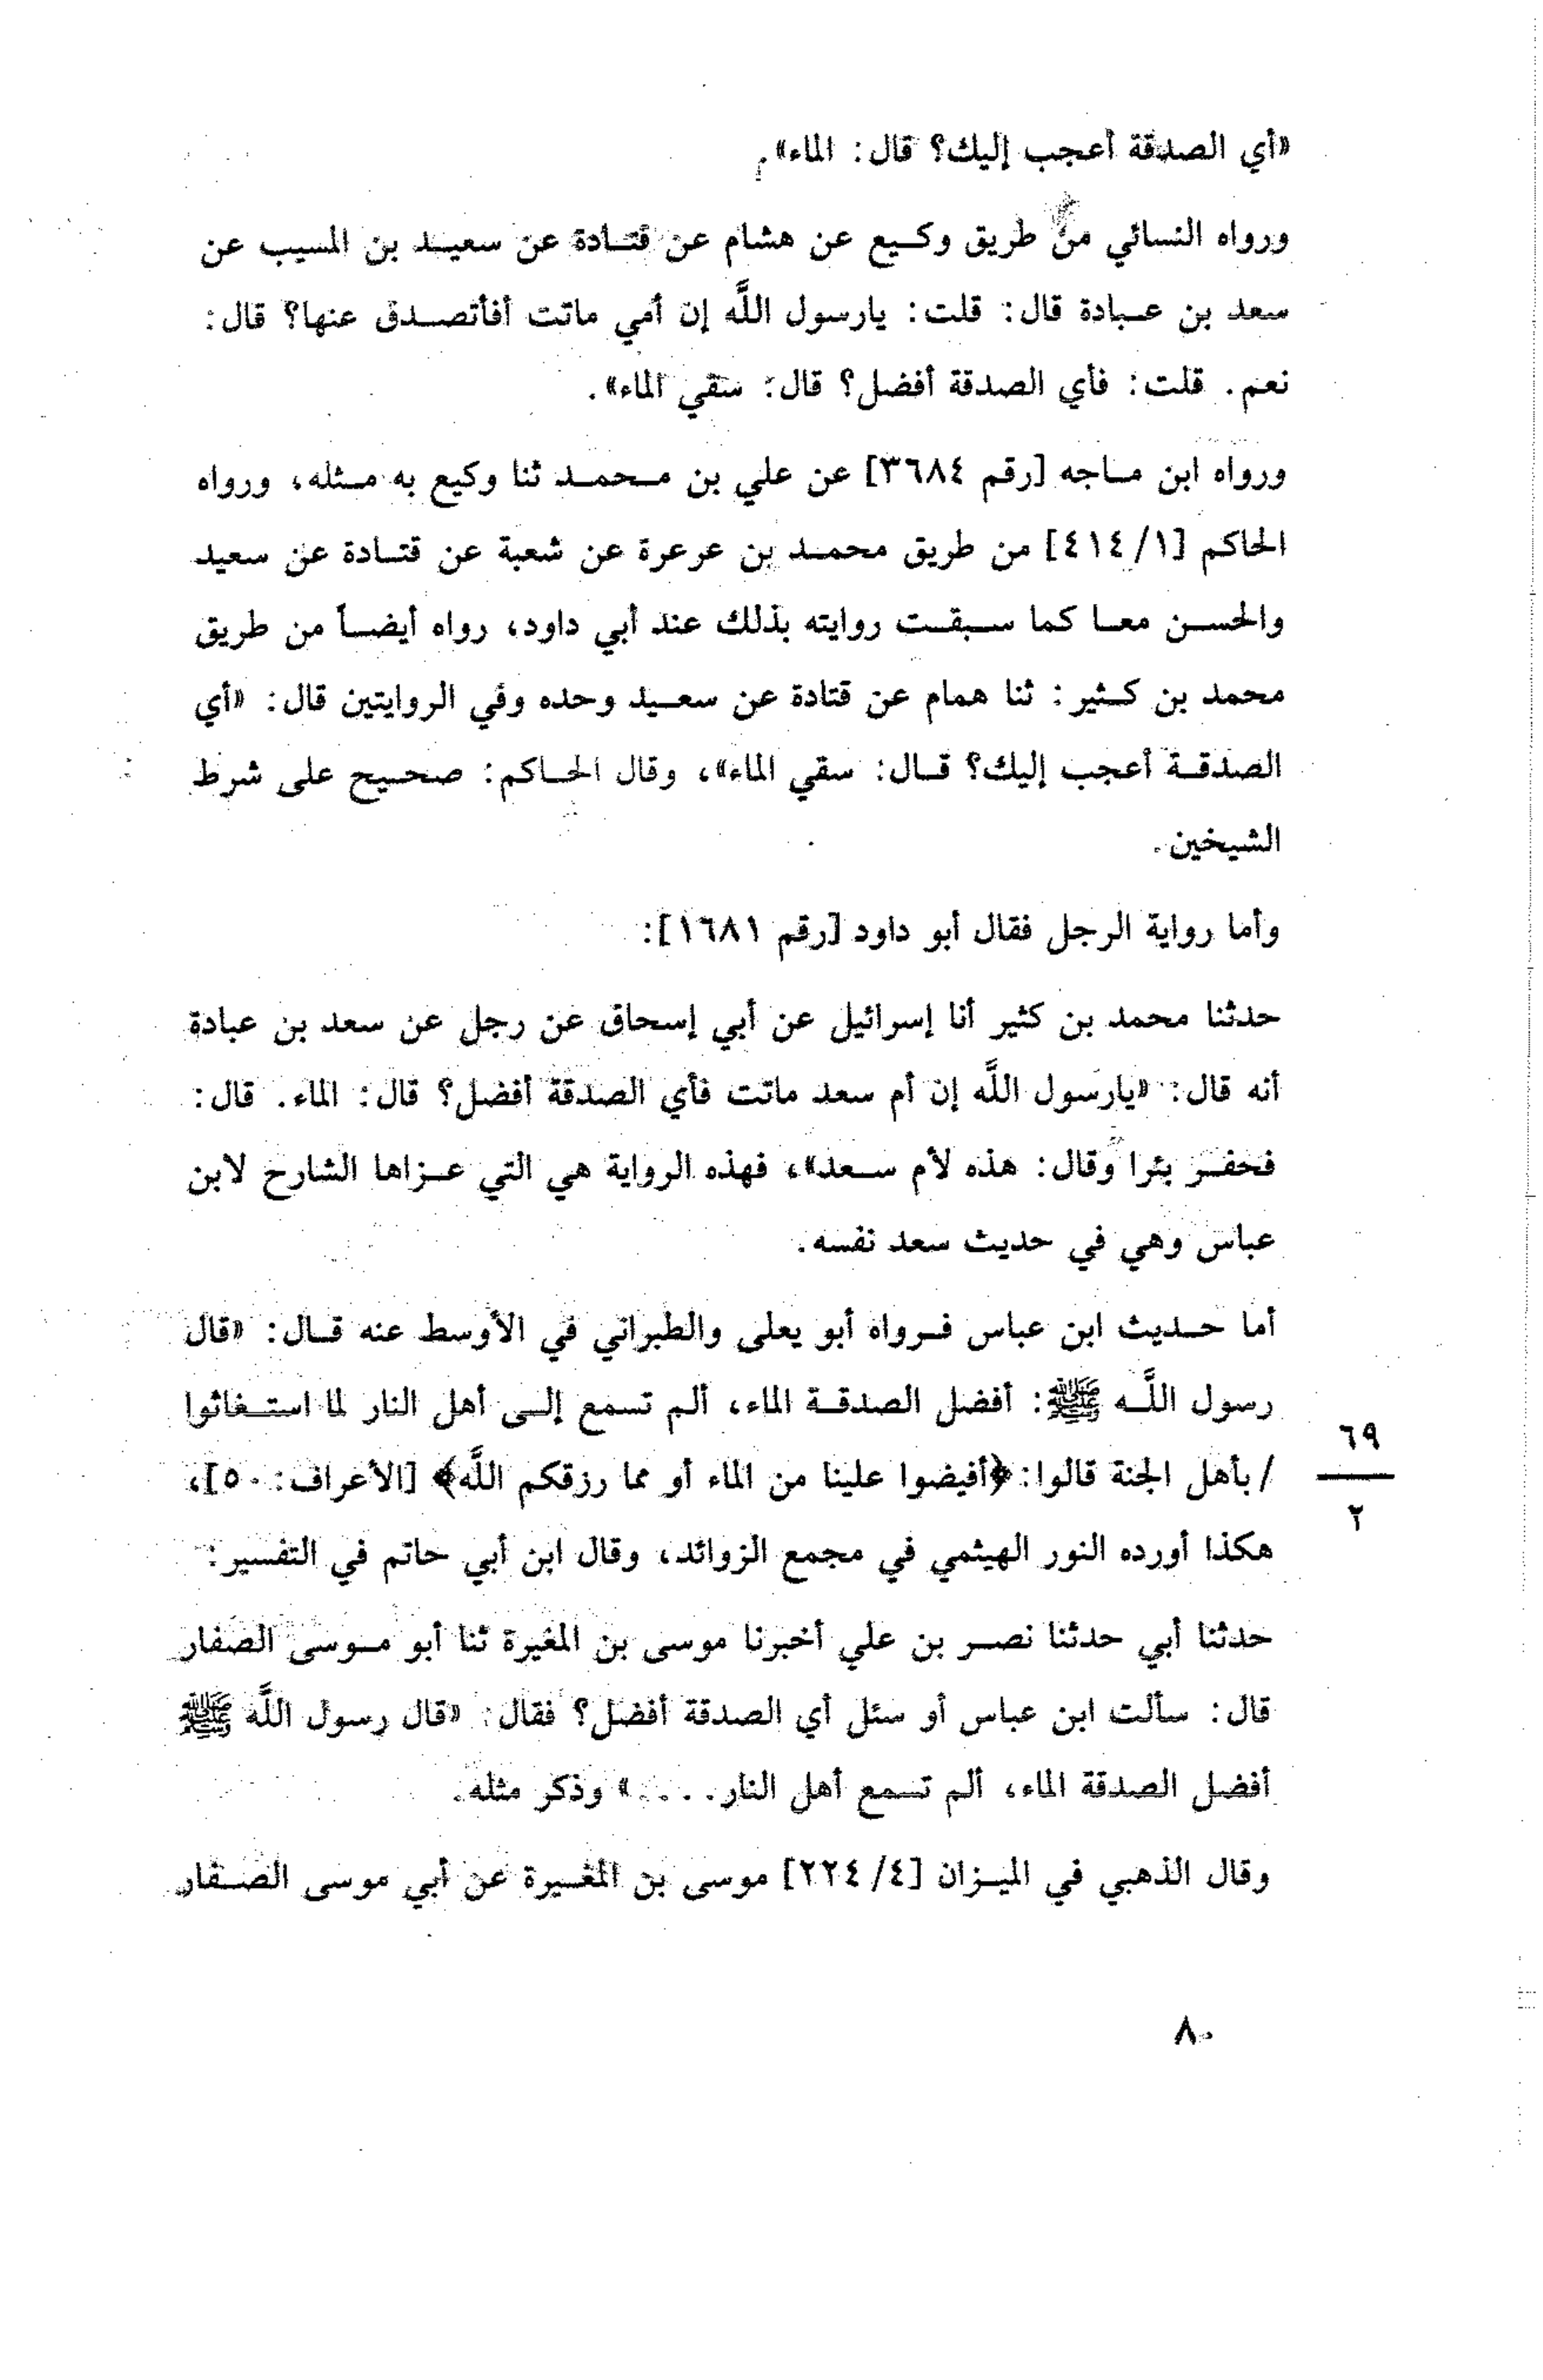 «أي الصدقة أعجب إليك؟ قال: الماء».
ورواه النسائي من طريق وكيع عن هشام عن قتادة عن سعيد بن المسيب عن
سعد بن عبادة قال: قلت: يارسول اللَّه إن أمي ماتت أفأتصدق عنها؟ قال:
نعم. قلت: فأي الصدقة أفضل؟ قال: سقي الماء».
ورواه ابن ماجه [رقم ٣٦٨٤] عن علي بن محمد ثنا وكيع به مثله، ورواه
الحاكم [١/ ٤١٤] من طريق محمد بن عرعرة عن شعبة عن قتادة عن سعيد
والحسن معا كما سبقت روايته بذلك عند أبي داود، رواه أيضاً من طريق
محمد بن كثير: ثنا همام عن قتادة عن سعيد وحده وفي الروايتين قال: «أي
الصدقة أعجب إليك؟ قال: سقي الماء»، وقال الحاكم: صحيح على شرط
الشيخين.
وأما رواية الرجل فقال أبو داود [رقم ١٦٨١]:
حدثنا محمد بن كثير أنا إسرائيل عن أبي إسحاق عن رجل عن سعد بن عبادة
أنه قال: «يارسول اللَّه إن أم سعد ماتت فأي الصدقة أفضل؟ قال: الماء. قال:
فحفر بئرا وقال: هذه لأم سعد»، فهذه الرواية هي التي عزاها الشارح لابن
عباس وهي في حديث سعد نفسه.
أما حديث ابن عباس فرواه أبو يعلى والطبراني في الأوسط عنه قال: «قال
رسول اللَّه ﷺ: أفضل الصدقة الماء، ألم تسمع إلى أهل النار لما استغاثوا
٦٩
/ بأهل الجنة قالوا: ﴿أفيضوا علينا من الماء أو مما رزقكم اللَّه﴾ [الأعراف: ٥٠]،
٢
هكذا أورده النور الهيثمي في مجمع الزوائد، وقال ابن أبي حاتم في التفسير:
حدثنا أبي حدثنا نصر بن علي أخبرنا موسى بن المغيرة ثنا أبو موسى الصفار
قال: سألت ابن عباس أو سئل أي الصدقة أفضل؟ فقال: «قال رسول اللَّه ﷺ
أفضل الصدقة الماء، ألم تسمع أهل النار....» وذكر مثله.
وقال الذهبي في الميزان [٤/ ٢٢٤] موسى بن المغيرة عن أبي موسى الصفار
٨٠